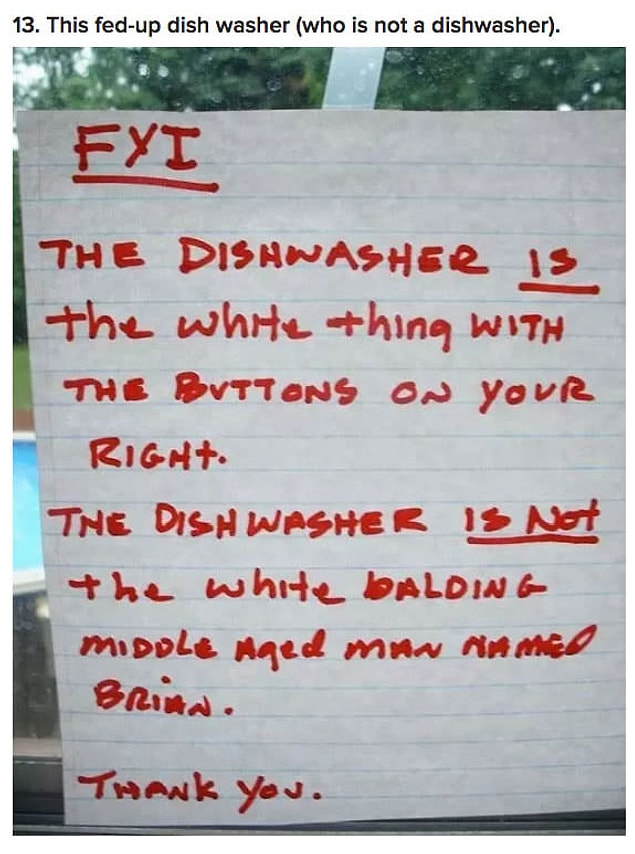 13. This fed-up dish washer (who is not a dishwasher).
FYI
THE DISHWASHER IS
the white thing WITH
THE BUTTONS ON YOUR
RIGHt.
THE DISHWASHER IS Not
the white BALDING
MIDDLE Aged MAN NAMED
BRIAN.
THANK YOU.